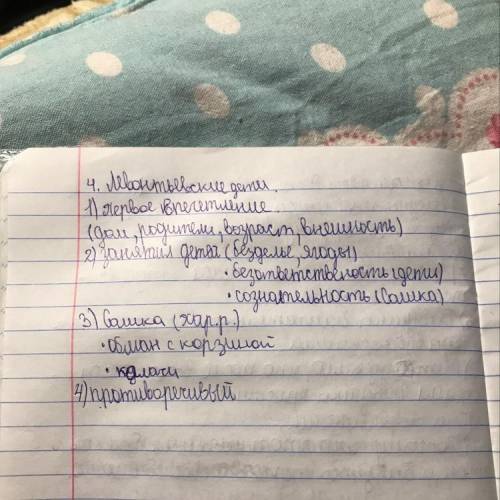 4. Левонтьевские дети.
1) Первое впечетление
(дом, родители, возраст, внешность)
2) занятия детва (безделье, ягоды)
• безответственость (дети)
• сознательность (Сашка)
3) Сашка (хар.р.)
• обман с корзиной
• калачи
4) противоречивый